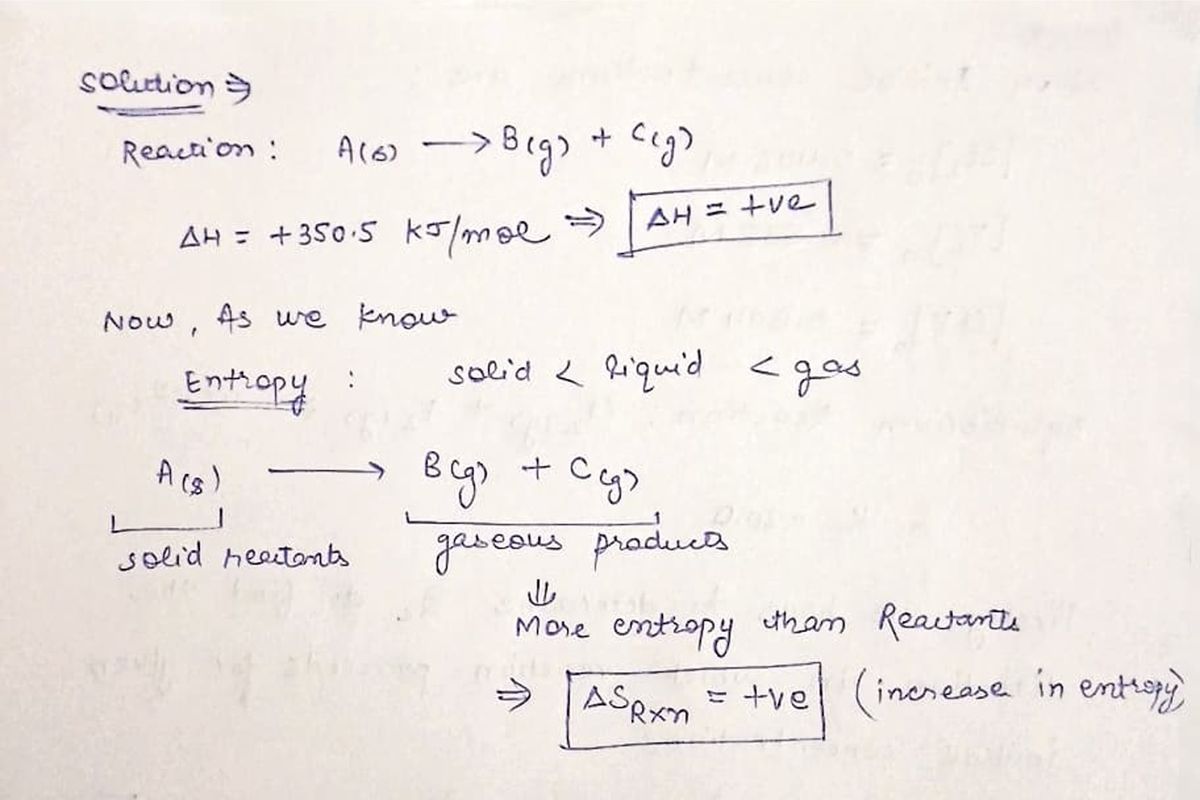 Solution ⇒
Reaction : A(s) ⟶ B(g) + C(g)
ΔH = +350.5 KJ/mol ⇒ ΔH = +ve
Now, As we know
Entropy : solid < liquid < gas
A(s) ⟶ B(g) + C(g)
solid reactants gaseous products
⇓
More entropy than Reactants
⇒ ΔSRxn = +ve (increase in entropy)